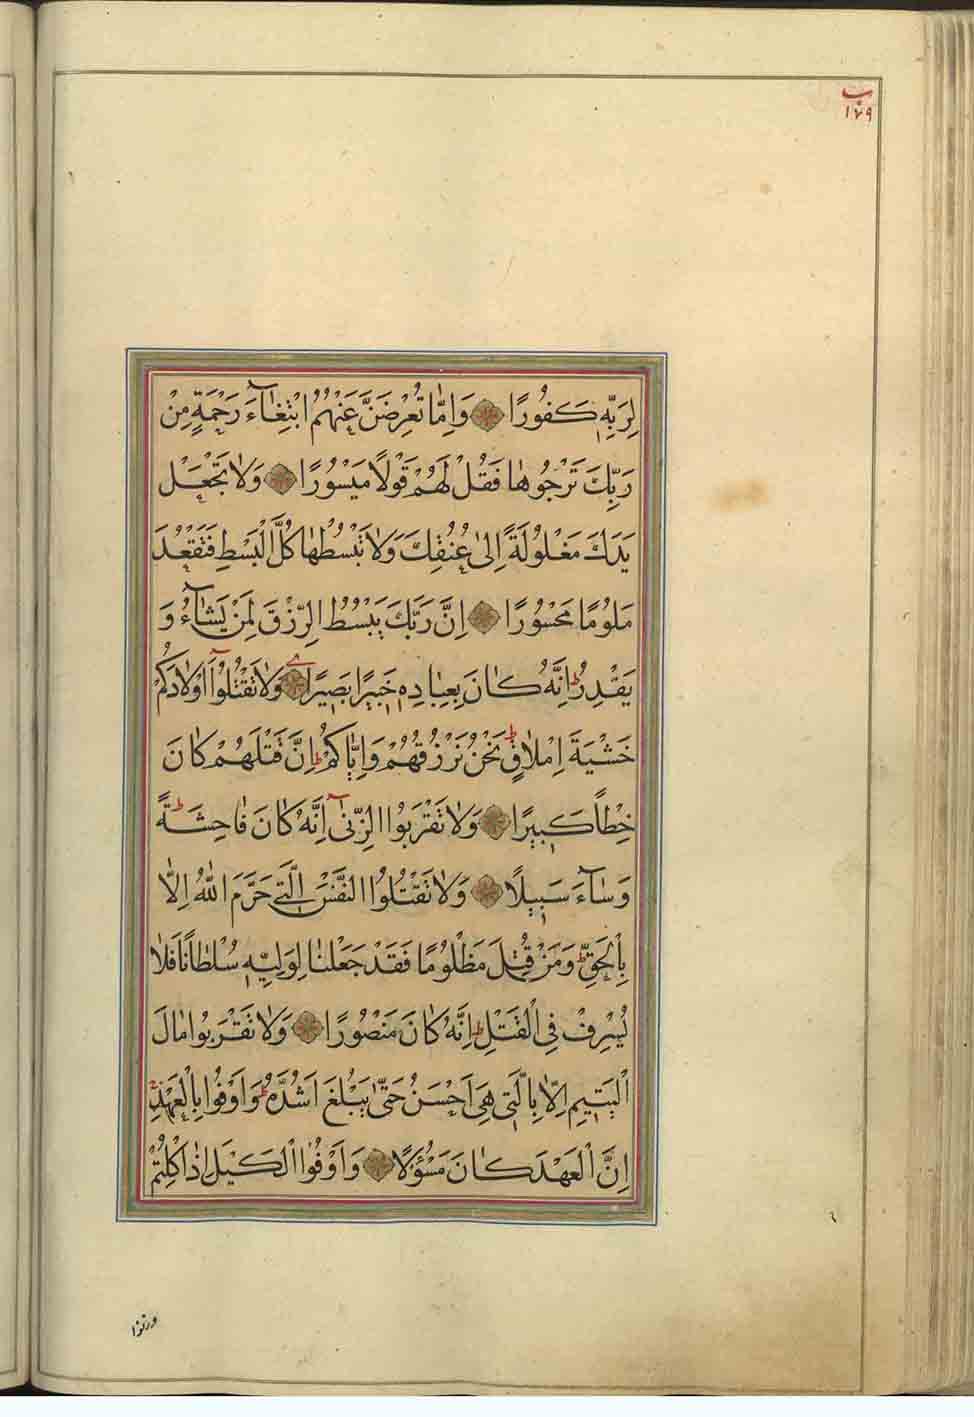 ب
١٧٩
لِرَبِّهٖ كَفُورًا وَاِمَّا تُعْرِضَنَّ عَنْهُمُ ابْتِغَآءَ رَحْمَةٍ مِنْ
رَبِّكَ تَرْجُوهَا فَقُلْ لَهُمْ قَوْلًا مَيْسُورًا وَلَا تَجْعَلْ
يَدَكَ مَغْلُولَةً اِلٰى عُنُقِكَ وَلَا تَبْسُطْهَا كُلَّ الْبَسْطِ فَتَقْعُدَ
مَلُومًا مَحْسُورًا اِنَّ رَبَّكَ يَبْسُطُ الرِّزْقَ لِمَنْ يَشَآءُ وَ
يَقْدِرُ ط اِنَّهُ كَانَ بِعِبَادِهٖ خَبِيرًا بَصِيرًا وَلَا تَقْتُلُوٓا اَوْلَادَكُمْ
خَشْيَةَ اِمْلَاقٍ ط نَحْنُ نَرْزُقُهُمْ وَاِيَّاكُمْ ط اِنَّ قَتْلَهُمْ كَانَ
خِطْأً كَبِيرًا وَلَا تَقْرَبُوا الزِّنٰٓى اِنَّهُ كَانَ فَاحِشَةً ط
وَسَآءَ سَبِيلًا وَلَا تَقْتُلُوا النَّفْسَ الَّتِي حَرَّمَ اللّٰهُ اِلَّا
بِالْحَقِّ ط وَمَنْ قُتِلَ مَظْلُومًا فَقَدْ جَعَلْنَا لِوَلِيِّهٖ سُلْطَانًا فَلَا
يُسْرِفْ فِي الْقَتْلِ ط اِنَّهُ كَانَ مَنْصُورًا وَلَا تَقْرَبُوا مَالَ
الْيَتِيمِ اِلَّا بِالَّتِي هِيَ اَحْسَنُ حَتّٰى يَبْلُغَ اَشُدَّهُ ط وَاَوْفُوا بِالْعَهْدِ
اِنَّ الْعَهْدَ كَانَ مَسْؤُلًا وَاَوْفُوا الْكَيْلَ اِذَا كِلْتُمْ
وزنوا